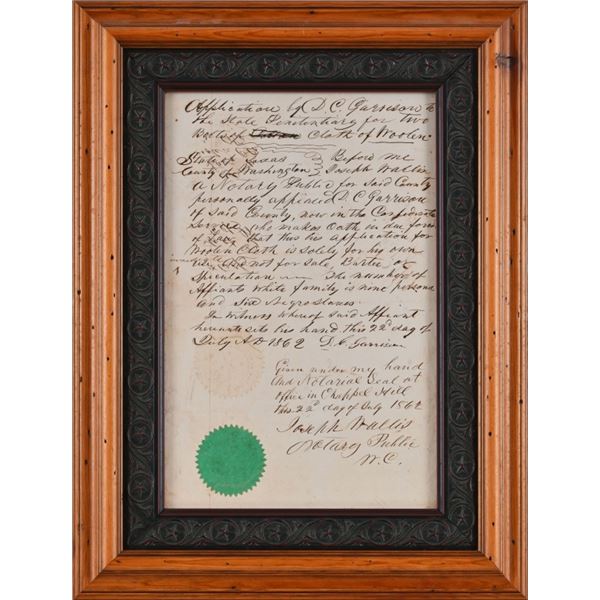 Application by D. C. Garrison to
the State Penitentiary for two
Bolts of Cloth of Woolen
State of Texas } Before me
County of Washington } Joseph Wallis
a Notary Public for Said County
personally appeared D. C. Garrison
of Said County, now in the Confederate
Service who makes Oath in due form
of Law, that this his application for
Woolen Cloth is solely for his own
use and not for Sale, Barter, or
Speculation The number of
Affiants White family is nine persons
and Six Negro Slaves
In Witness Whereof Said Affiant
hereunto sets his hand this 22d day of
July A D 1862 D. C. Garrison
Given under my hand
and Notarial Seal at
office in Chappel Hill
this 22d day of July 1862
Joseph Wallis
Notary Public
W. C.